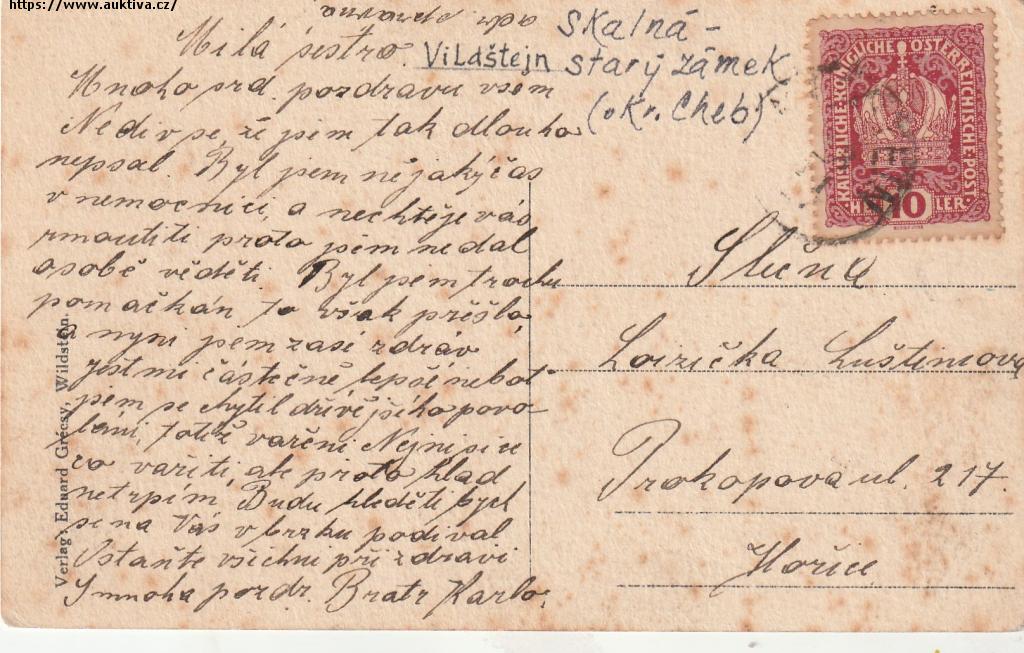 https://www.auktiva.cz/
Milá sestro.
Mnoho srd. pozdravu vsem
Nediv se, že jsem tak dlouho
nepsal. Byl jsem nějaký čas
v nemocnici, a nechtěje vás
rmoutiti proto jsem nedal
osobě věděti. Byl jsem trochu
pomačkán, to však přešlo
a nyni jsem zase zdráv
jest mi částečně lepší nebot
jsem se chytil dřívějšího povo
láni, totiž vařeni. Nejni sice
co vařiti, ale proto hlad
netrpím. Budu hleděti bych
se na Vás v brzku podíval
Ostaňte všichni při zdravi
S mnoha pozdr. Bratr Karlo,
Skalná -
Vildštejn starý zámek
(okr. Cheb)
KAISERLICHE KÖNIGLICHE ÖSTERREICHISCHE POST
HELLER
10
Slečna
Loizička Luštincova
Prokopova ul. 217.
Hořice
Verlag: Eduard Grécsy, Wildstein.